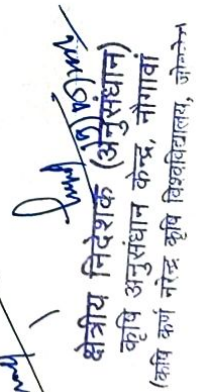 क्षेत्रीय निदेशक (अनुसंधान)
कृषि अनुसंधान केन्द्र, नौगावां
(श्री कर्ण नरेन्द्र कृषि विश्वविद्यालय, जोबनेर